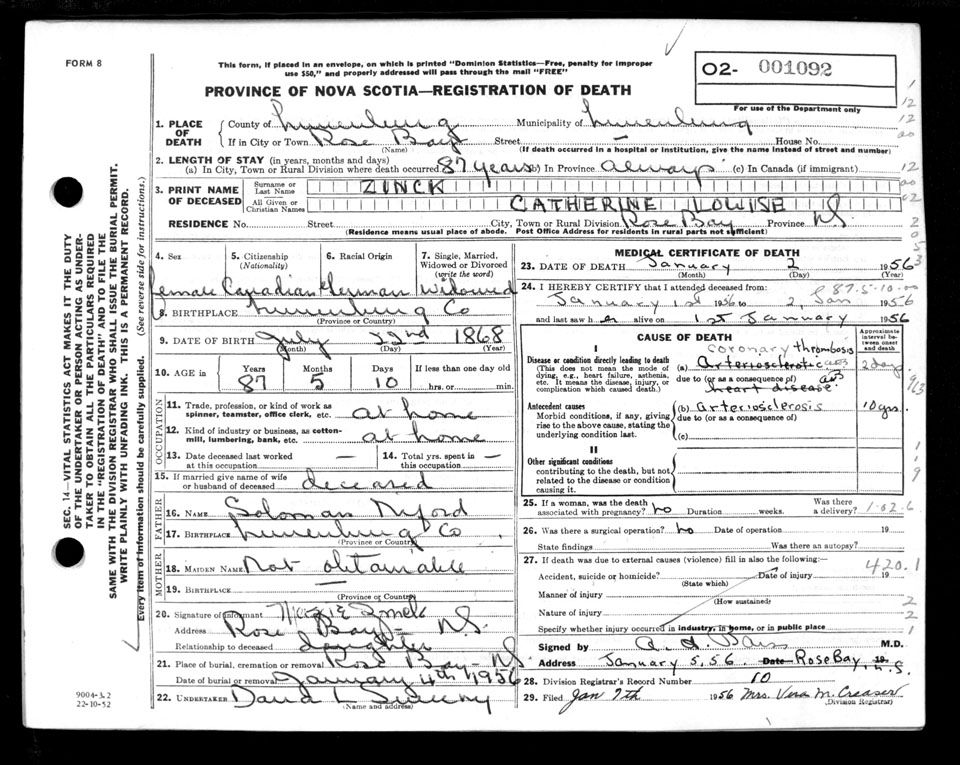 FORM 8
This form, if placed in an envelope, on which is printed "Dominion Statistics—Free, penalty for improper
use $50," and properly addressed will pass through the mail "FREE"
O2- 001092
For use of the Department only
PROVINCE OF NOVA SCOTIA—REGISTRATION OF DEATH
1. PLACE OF DEATH
County of Lunenburg Municipality of Lunenburg
If in City or Town Rose Bay Street — House No.
(Name) (If death occurred in a hospital or institution, give the name instead of street and number)
2. LENGTH OF STAY (in years, months and days)
(a) In City, Town or Rural Division where death occurred 87 years (b) In Province always (c) In Canada (if immigrant)
3. PRINT NAME OF DECEASED
Surname or Last Name ZINCK
All Given or Christian Names CATHERINE LOUISE
RESIDENCE No. Street City, Town or Rural Division Rose Bay Province N.S.
(Residence means usual place of abode. Post Office Address for residents in rural parts not sufficient)
4. Sex female
5. Citizenship (Nationality) Canadian
6. Racial Origin German
7. Single, Married, Widowed or Divorced (write the word) Widowed
8. BIRTHPLACE Lunenburg Co
(Province or Country)
9. DATE OF BIRTH July 22nd 1868
(Month) (Day) (Year)
10. AGE in Years 87 Months 5 Days 10 If less than one day old hrs. or min.
OCCUPATION
11. Trade, profession, or kind of work as spinner, teamster, office clerk, etc. at home
12. Kind of industry or business, as cotton-mill, lumbering, bank, etc. at home
13. Date deceased last worked at this occupation —
14. Total yrs. spent in this occupation —
15. If married give name of wife or husband of deceased deceased
FATHER
16. Name Soloman
17. Birthplace Lunenburg Co
(Province or Country)
MOTHER
18. Maiden Name Not obtainable
19. Birthplace —
(Province or Country)
20. Signature of informant
Address Rose Bay N.S.
Relationship to deceased daughter
21. Place of burial, cremation or removal Rose Bay N.S.
Date of burial or removal January 4th 1956
22. UNDERTAKER David L
(Name and address)
MEDICAL CERTIFICATE OF DEATH
23. DATE OF DEATH January 2 1956
(Month) (Day) (Year)
87.5-10.00
24. I HEREBY CERTIFY that I attended deceased from:
January 1st 1956 to 2, Jan 1956
and last saw her alive on 1st January 1956
CAUSE OF DEATH
Approximate interval between onset and death
I
Disease or condition directly leading to death
(This does not mean the mode of dying, e.g., heart failure, asthenia, etc. It means the disease, injury, or complication which caused death.)
coronary thrombosis
(a) Arteriosclerotic 2 days
due to (or as a consequence of)
heart disease.
Antecedent causes
Morbid conditions, if any, giving rise to the above cause, stating the underlying condition last.
(b) arteriosclerosis 10 yrs.
due to (or as a consequence of)
(c)
II
Other significant conditions
contributing to the death, but not related to the disease or condition causing it.
25. If a woman, was the death associated with pregnancy? no Duration weeks. Was there a delivery? 1-02.6
26. Was there a surgical operation? no Date of operation 19
State findings Was there an autopsy?
27. If death was due to external causes (violence) fill in also the following:—
420.1
Accident, suicide or homicide? Date of injury 19
(State which)
Manner of injury
(How sustained)
Nature of injury
Specify whether injury occurred in industry, in home, or in public place
Signed by M.D.
Address January 5, 56. Date Rose Bay, 19 N.S.
28. Division Registrar's Record Number 10
29. Filed Jan 7th 1956 Mrs. Vera M. Creaser
(Division Registrar)
SEC. 14—VITAL STATISTICS ACT MAKES IT THE DUTY
OF THE UNDERTAKER OR PERSON ACTING AS UNDER-
TAKER TO OBTAIN ALL THE PARTICULARS REQUIRED
IN THE "REGISTRATION OF DEATH" AND TO FILE THE
SAME WITH THE DIVISION REGISTRAR WHO SHALL ISSUE THE BURIAL PERMIT.
WRITE PLAINLY WITH UNFADING INK. THIS IS A PERMANENT RECORD.
Every item of information should be carefully supplied. (See reverse side for instructions.)
9004-3.2
22-10-52